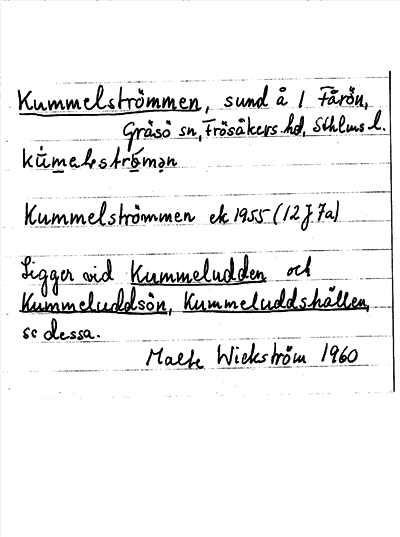 Kummelströmmen, sund å / Fårön,
Gräsö sn, Frösåkers hd, Sthlms l.
Kummelströmmen ek 1955 (12J 7a)
Ligger vid Kummeludden och
Kummeluddsön, Kummeluddshällen,
se dessa.
Malte Wickström 1960